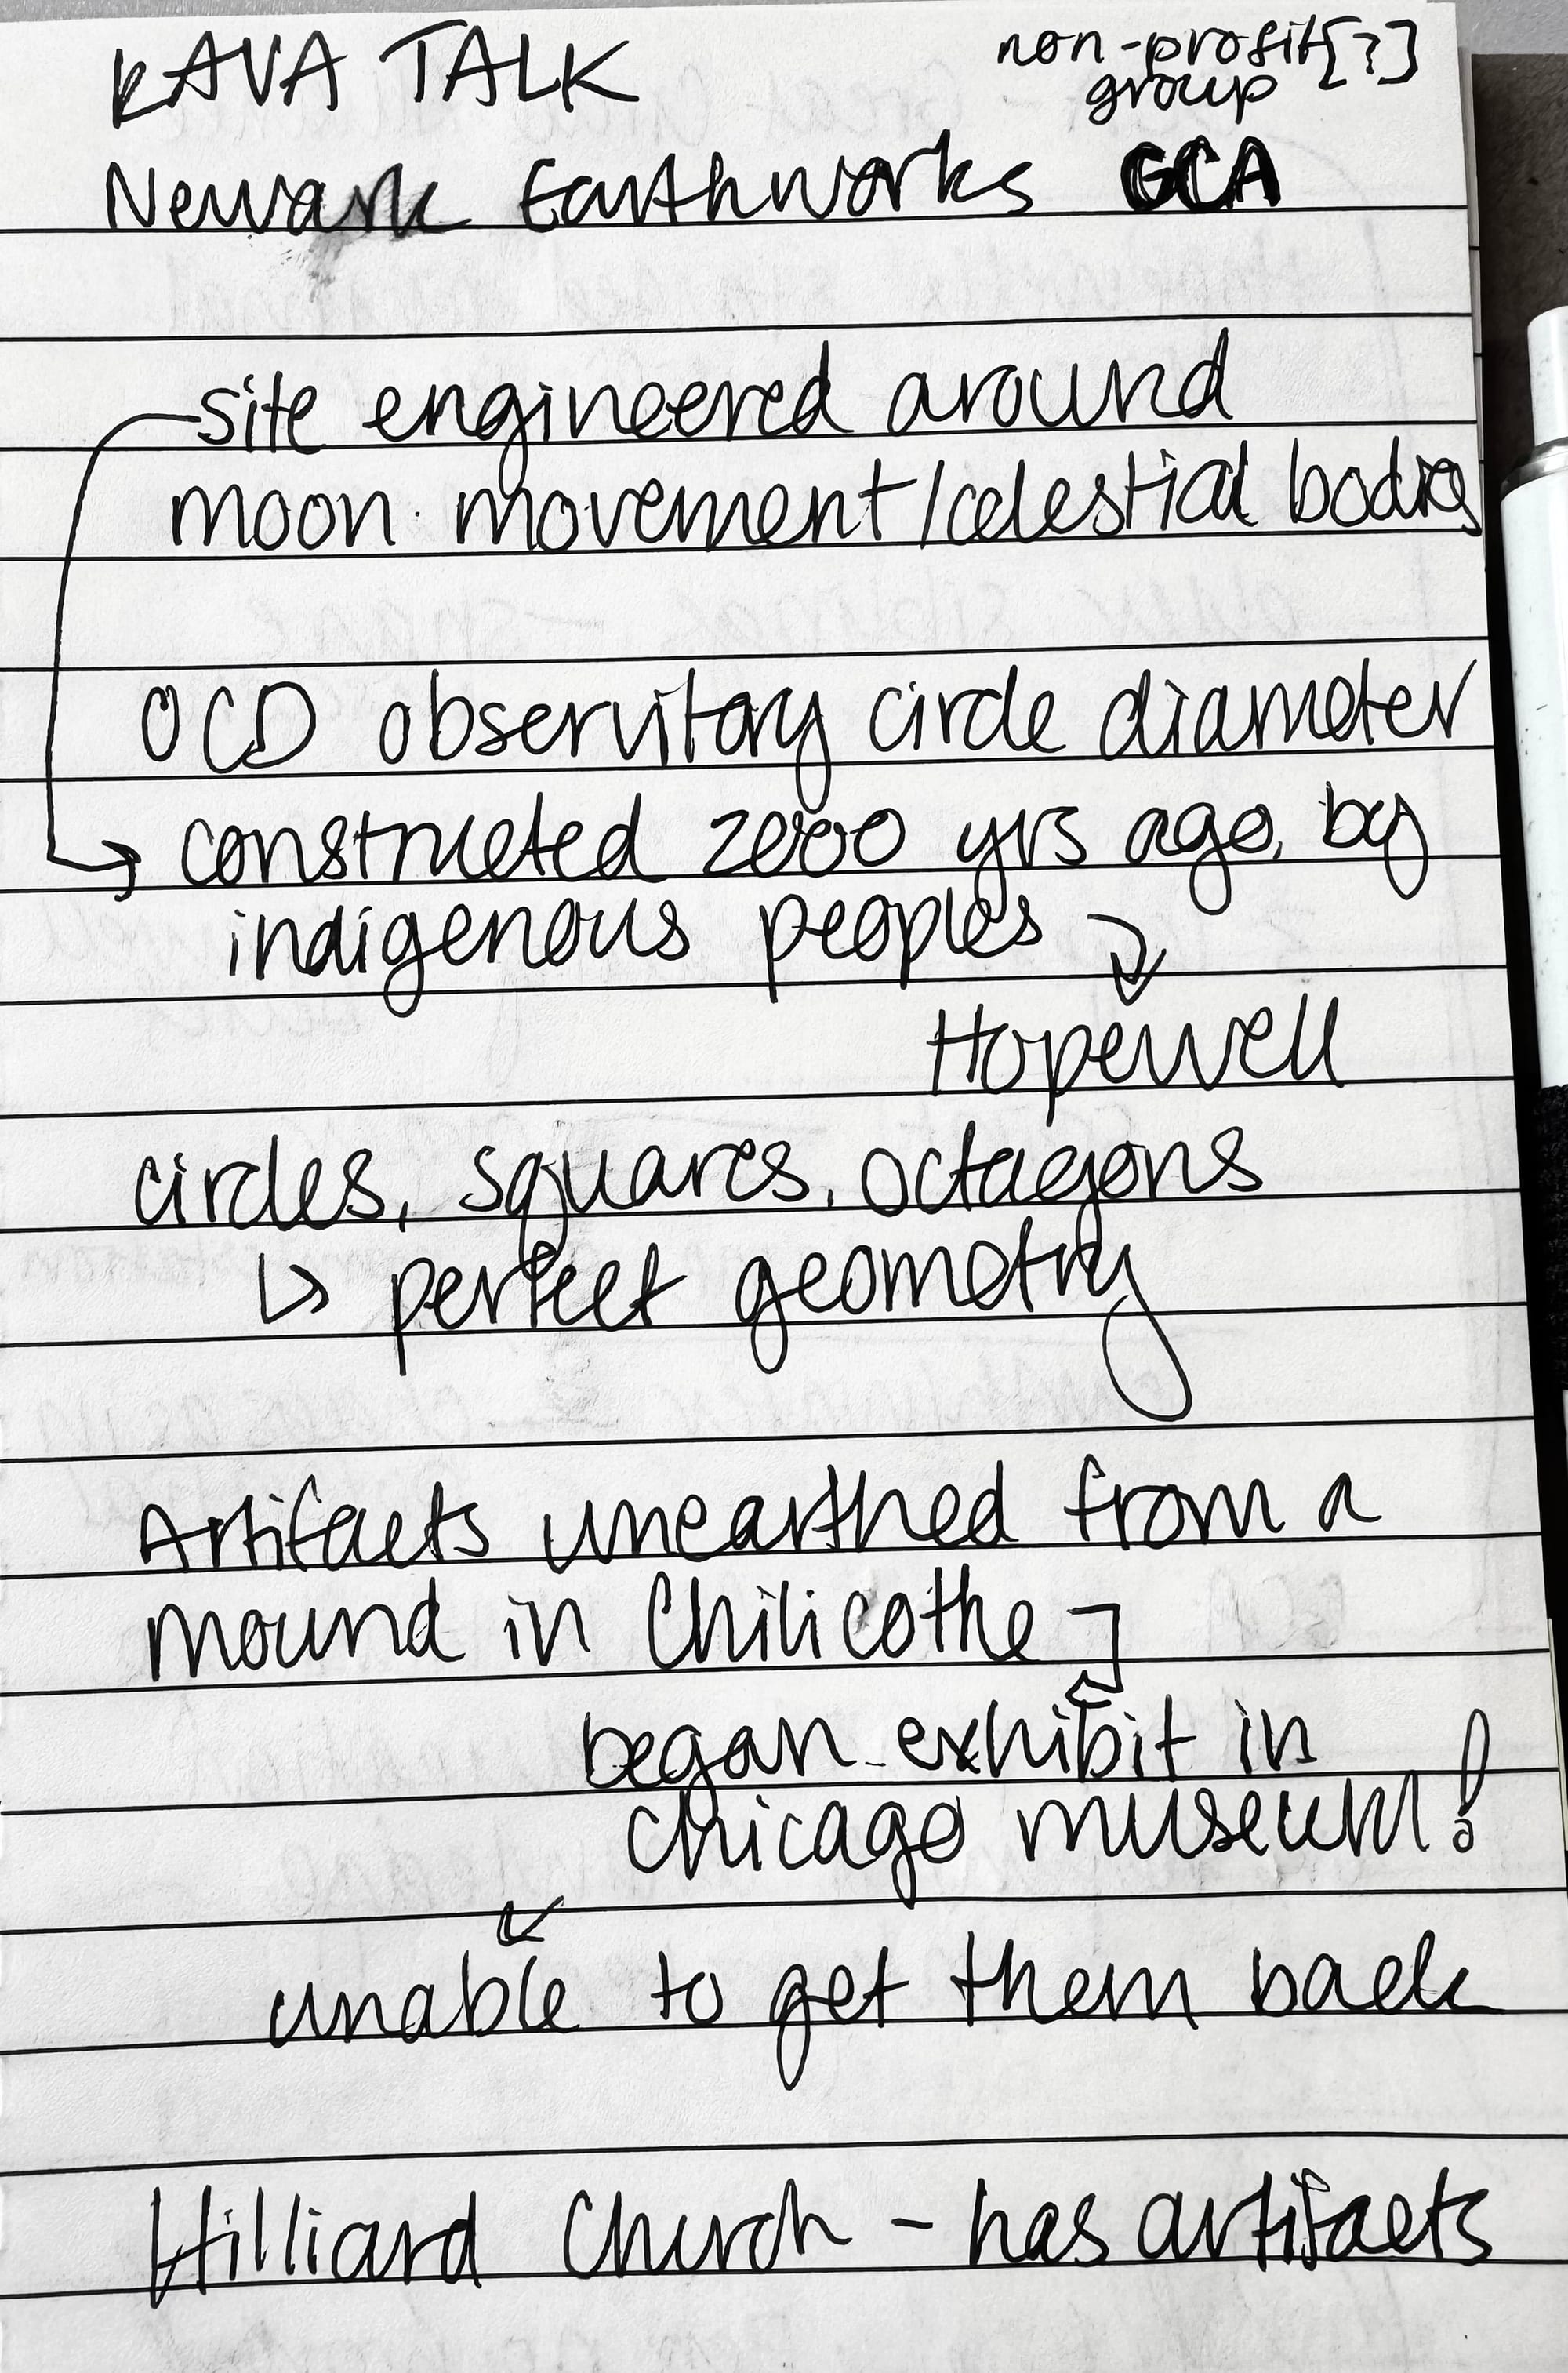 KAVA TALK
non-profit[?]
group
Newark Earthworks GCA
site engineered around
moon movement/celestial bodies
OCD observitory circle diameter
constructed 2000 yrs ago, by
indigenous peoples
Hopewell
circles, squares, octagons
perfect geometry
Artifacts unearthed from a
mound in Chilicothe
began exhibit in
chicago museum!
unable to get them back
Hilliard Church - has artifacts